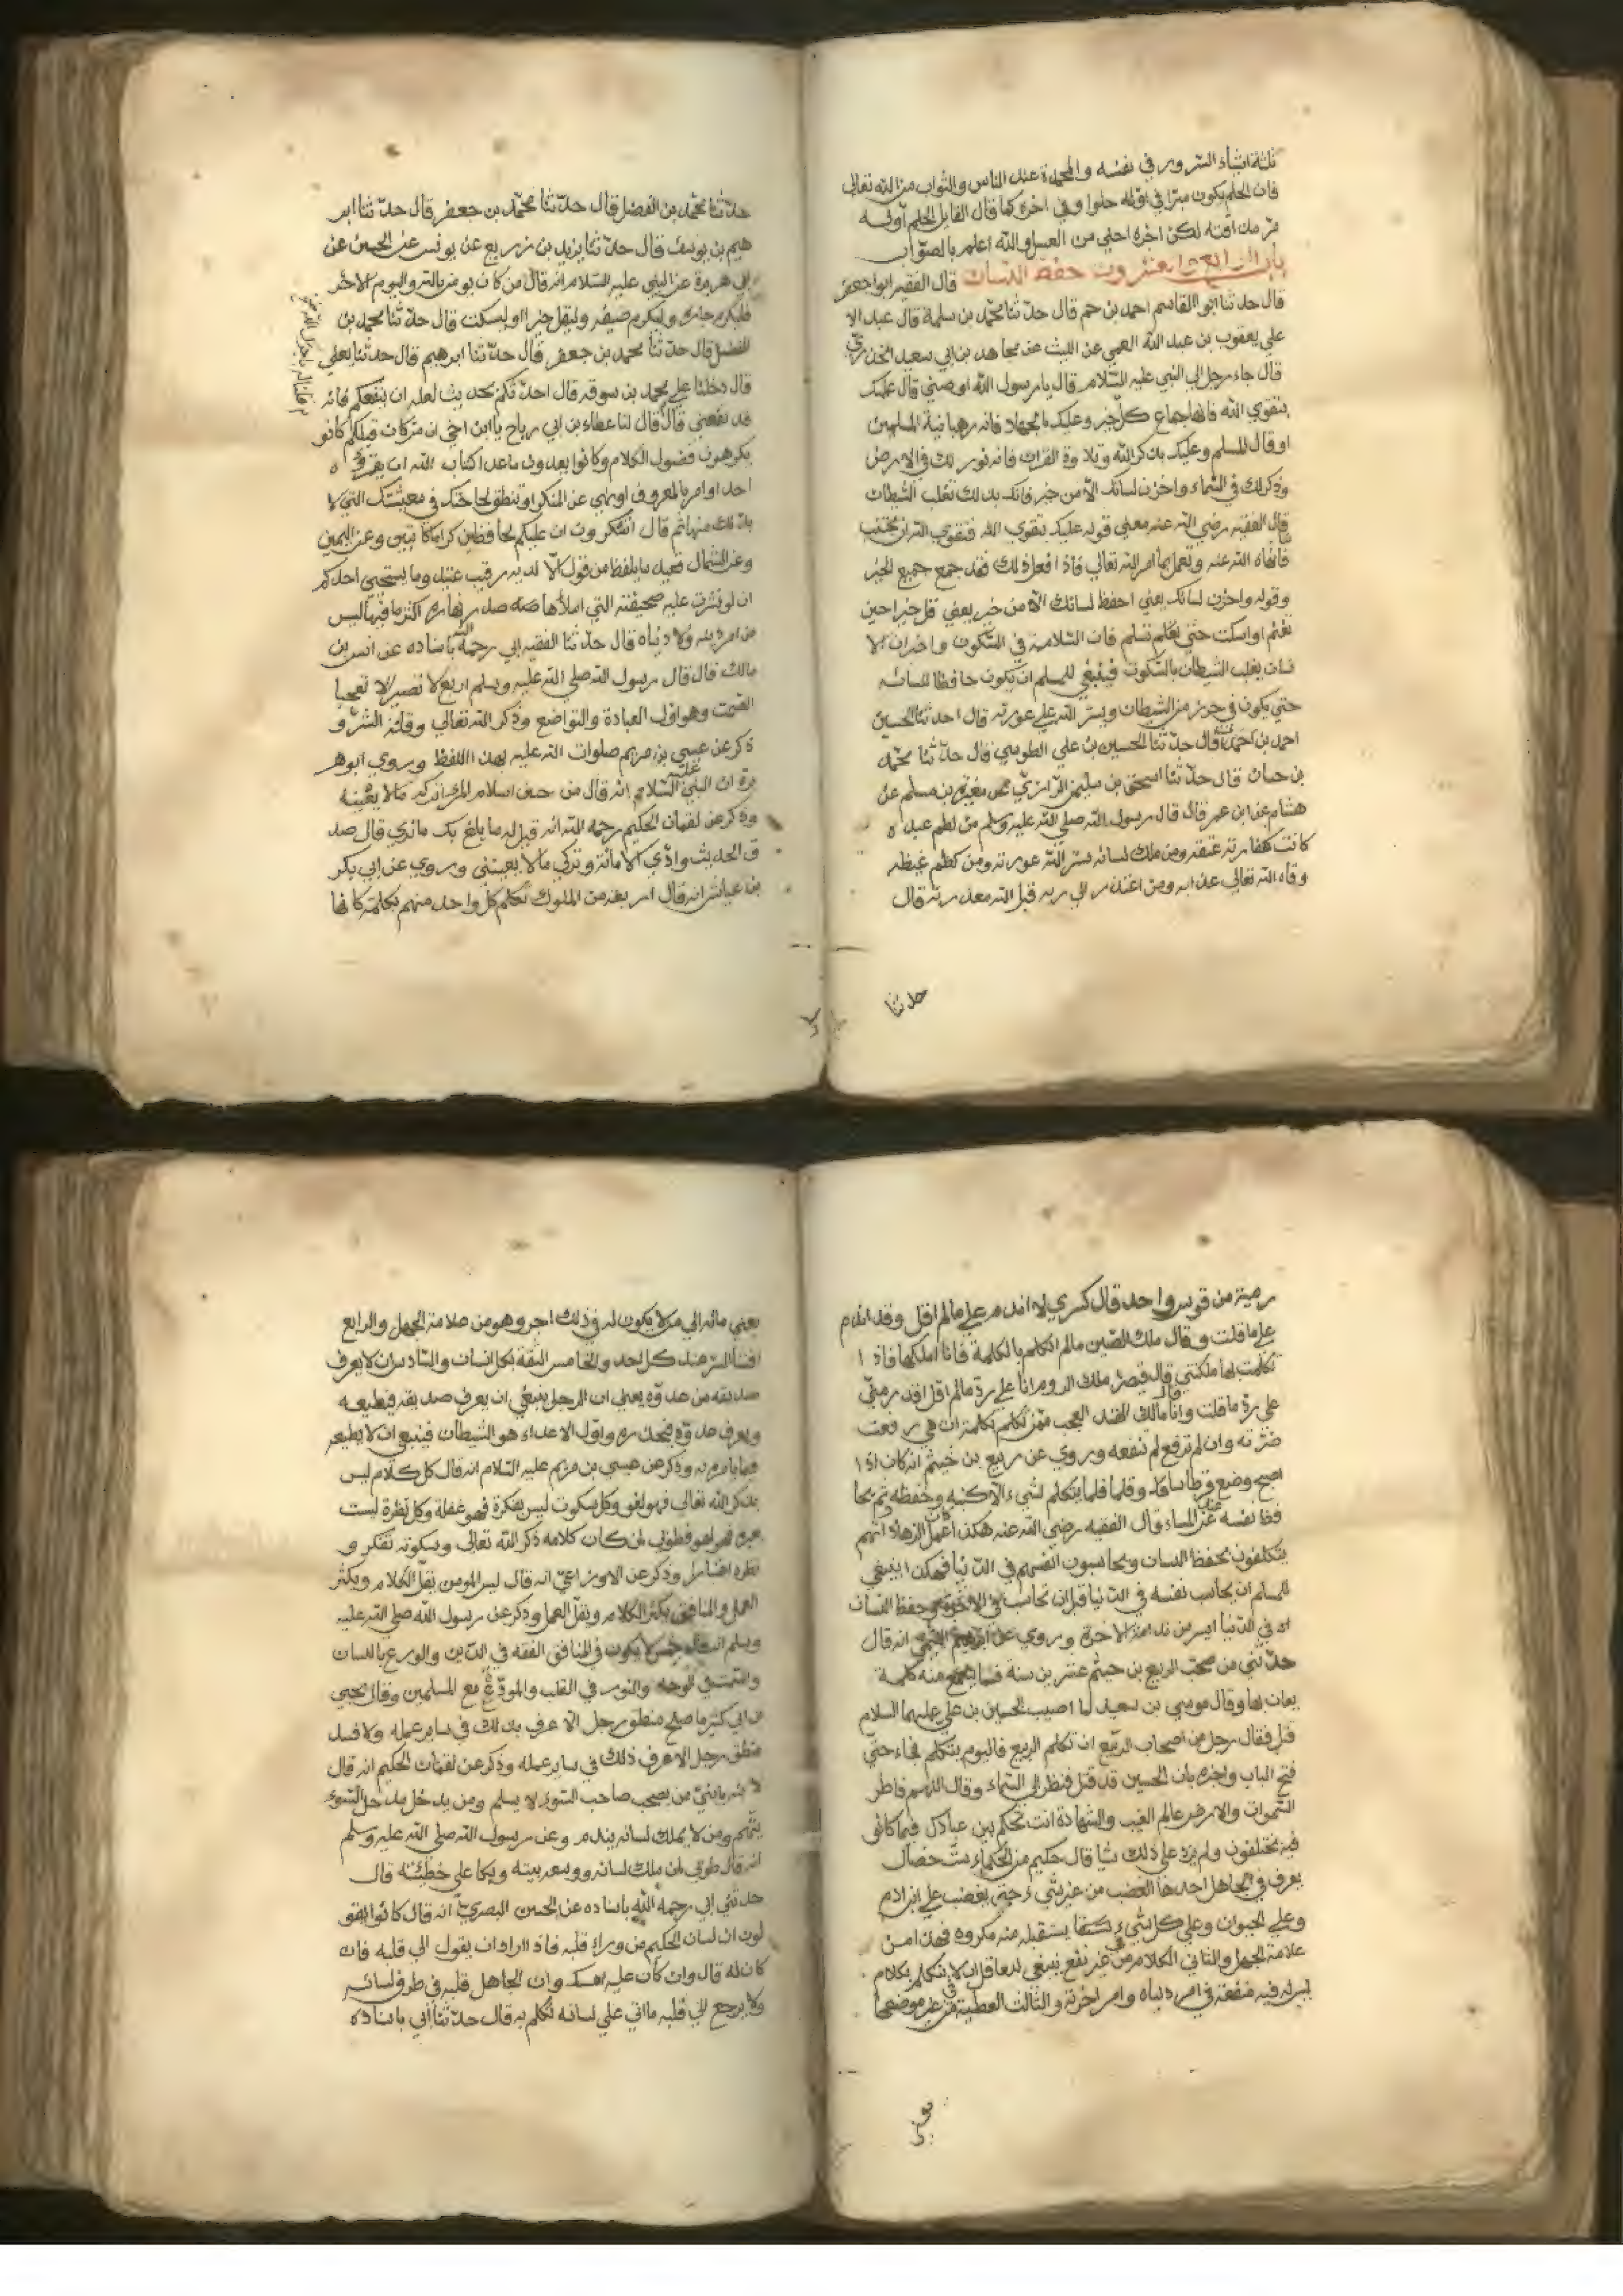 ثلثة اشياء السرور في نفسه والمحمدة عند الناس والثواب من الله تعالى
فان الحلم يكون مرا في اوله حلوا وفي اخره كما قال القايل الحلم اوله
مر مذاقته لكن اخره احلى من العسل والله اعلم بالصواب
باب الرابع والعشرون حفظ اللسان قال الفقيه ابو جعفر
قال حدثنا ابو القاسم احمد بن حم قال حدثنا محمد بن سلمة قال عبد الا
علي يعقوب بن عبد الله العمي عن الليث عن مجاهد بن ابي سعيد الخدري
قال جاء رجل الي النبي عليه السلام قال يا رسول الله اوصني قال عليك
بتقوي الله فانها جماع كل خير وعليك بالجهاد فانه رهبانية المسلمين
او قال للمسلم وعليك بذكر الله وتلاوة القران فانه نور لك في الارض
وذكر لك في السماء واخزن لسانك الا من خير فانك بذلك تغلب الشيطان
قال الفقيه رضي الله عنه معني قوله عليك بتقوي الله فتقوي الله ان يجتنب
فانهاه الله عنه وتعمل بما امر الله تعالي فاذا فعل ذلك فقد جمع جميع الخير
وقوله واخزن لسانك يعني احفظ لسانك الا من خير يعني قل خيرا حين
تغنم او اسكت حتى تسلم فان السلامة في السكوت واخزان الا
نسان يغلب الشيطان بالسكوت فينبغي للمسلم ان يكون حافظا للسانه
حتي يكون في حرز من الشيطان ويستر الله علي عورته قال احدثنا الحسين
احمد بن احمد قال حدثنا الحسين بن علي الطوسي قال حدثنا محمد
بن حسان قال حدثنا اسحق بن سليمن الرازي عن مغيرة بن مسلم عن
هشام عن ابن عمر قال قال رسول الله صلي الله عليه وسلم من لطم عبده
كانت كفارته عتقه ومن ملك لسانه ستر الله عورته ومن كظم غيظه
وقاه الله تعالي عذابه ومن اعتذر الي ربه قبل الله معذرته قال
حدثنا
حدثنا محمد بن الفضل قال حدثنا محمد بن جعفر قال حدثنا ابر
هيم بن يوسف قال حدثنا يزيد بن زريع عن يونس عن الحسن عن
ابي هريرة عن النبي عليه السلام انه قال من كان يومن بالله واليوم الاخر
فليكرم جاره وليكرم ضيفه وليقل خيرا او ليسكت قال حدثنا محمد بن
الفضل قال حدثنا محمد بن جعفر قال حدثنا ابرهيم قال حدثنا يعلي
قال دخلنا علي محمد بن سوقه قال احدثكم بحديث لعله ان ينفعكم فانه
قد نفعني قال قال لنا عطاء بن ابي رباح يا ابن اخي ان من كان قبلكم كانو
يكرهون فضول الكلام وكانوا يعدون ما عدا كتاب الله ان يقرؤه
احد او امر بالمعروف او نهي عن المنكر او تنطق لحاجتك في معيشتك التي لا
بد لك منها ثم قال اتنكرون ان عليكم لحافظين كراما كاتبين وعن اليمين
وعن الشمال قعيد ما يلفظ من قول الا لديه رقيب عتيد وما يستحيي احدكم
ان لو نشرت عليه صحيفته التي املاها صدر نهاره اكثر ما فيها ليس
من امر دينه ولا دنياه قال حدثنا الفقيه ابي رحمة الله باسناده عن انس بن
مالك قال قال رسول الله صلي الله عليه وسلم اربع لا تصير الا تعجبا
الصمت وهو اول العبادة والتواضع وذكر الله تعالي وقلة الشر و
ذكر عن عيسي بن مريم صلوات الله عليه بهذا اللفظ وروي ابو هر
يرة ان النبي عليه السلام انه قال من حسن اسلام المرء تركه مالا يعنيه
وذكر عن لقمان الحكيم رحمه الله انه قيل له ما بلغ بك ما نري قال صد
ق الحديث وادي الامانة وتركي مالا يعنيني وروي عن ابي بكر
بن عياش انه قال اربعة من الملوك تكلم كل واحد منهم بكلمة كانها
رمية من قوس واحد قال كسري لا اندم علي مالم اقل وقد اندم
علي ما قلت وقال ملك الصين مالم اتكلم بالكلمة فانا املكها فاذا
تكلمت بها ملكتني قال قيصر ملك الروم انا علي رد مالم اقل اقدر مني
علي رد ما قلت وقال ملك الهند العجب ممن تكلم بكلمة ان هي رفعت
ضرته وان لم ترفع لم تنفعه وروي عن ربيع بن خيثم انه كان اذا
اصبح وضع قرطاسا وقلما فلا يتكلم لشيء الا كتبه وحفظه ثم يحا
فظا نفسه عند المساء قال الفقيه رضي الله عنه هكذا عمل الزهاد انهم
يتكلفون بحفظ اللسان ويحاسبون انفسهم في الدنيا فهكذا ينبغي
للمسلم ان يحاسب نفسه في الدنيا قبل ان تحاسب في الاخرة وحفظ اللسان
اه في الدنيا ايسر من ندامة الاخرة وروي عن ابرهيم التيمي انه قال
حدثني من صحب الربيع بن خيثم عشرين سنة فما يسمع منه كلمة
يعاب بها وقال موسي بن سعيد لما اصيب الحسين بن علي عليهما السلام
قتل فقال رجل من اصحاب الربيع ان تكلم الربيع فاليوم يتكلم فجاء حتي
فتح الباب واخبره بان الحسين قد قتل فنظر الي السماء وقال اللهم فاطر
السموات والارض عالم الغيب والشهادة انت تحكم بين عبادك فيما كانو
فيه يختلفون ولم يزد علي ذلك شيا قال حكيم من الحكماء ست خصال
يعرف في الجاهل احدها الغضب من غير شيء حتي يغضب علي ابن ادم
وعلي الحيوان وعلي كل شيء يستقبله منه مكروه فهذا من
علامة الجهل والثاني الكلام من غير نفع ينبغي للعاقل ان لا يتكلم بكلام
ليس له فيه منفعة في امر دنياه وامر اخرته والثالث العطية في غير موضعها
يعني
يعني ماله الي من لا يكون له في ذلك اجر وهو من علامة الجهل والرابع
افشا السر عند كل احد والخامس الثقة بكل انسان والسادس ان لا يعرف
صديقه من عدوه يعني ان الرجل ينبغي ان يعرف صديقه فيطيعه
ويعرف عدوه فيحذره واول الاعداء هو الشيطان فينبغي ان لا يطيعه
فيما يامره به وذكر عن عيسي بن مريم عليه السلام انه قال كل كلام ليس
بذكر الله تعالي فهو لغو وكل سكوت ليس بفكرة فهو غفلة وكل نظرة ليست
بعبرة فهو لهو فطوبي لمن كان كلامه ذكر الله تعالي وسكوته تفكر و
نظره وذكر عن الاوزاعي انه قال ليس المومن يقل الكلام ويكثر
العمل والمنافق يكثر الكلام ويقل العمل وذكر عن رسول الله صلي الله عليه
وسلم انه قال خمس لا يكون في المنافق الفقه في الدين والورع باللسان
والتبسم في الوجه والنور في القلب والمودة مع المسلمين وقال يحيي
بن ابي كثير ما صلح منطق رجل الا عرف بذلك في ساير عمله ولا فسد
منطق رجل الا عرف ذلك في ساير عمله وذكر عن لقمان الحكيم انه قال
لابنه يا بني من يصحب صاحب السوء لا يسلم ومن يدخل مدخل السوء
يتهم ومن لا يملك لسانه يندم وعن رسول الله صلي الله عليه وسلم
انه قال طوبي لمن ملك لسانه ووسعه بيته وبكا علي خطيئته قال
حدثني ابي رحمة الله باسناده عن الحسن البصري انه قال كانوا يقو
لون ان لسان الحكيم من وراء قلبه فاذا اراد ان يقول الي قلبه فان
كان له قال وان كان عليه امسك وان الجاهل قلبه في طرف لسانه
ولا يرجع الي قلبه ما اتي علي لسانه تكلم به قال حدثنا ابي باسناده